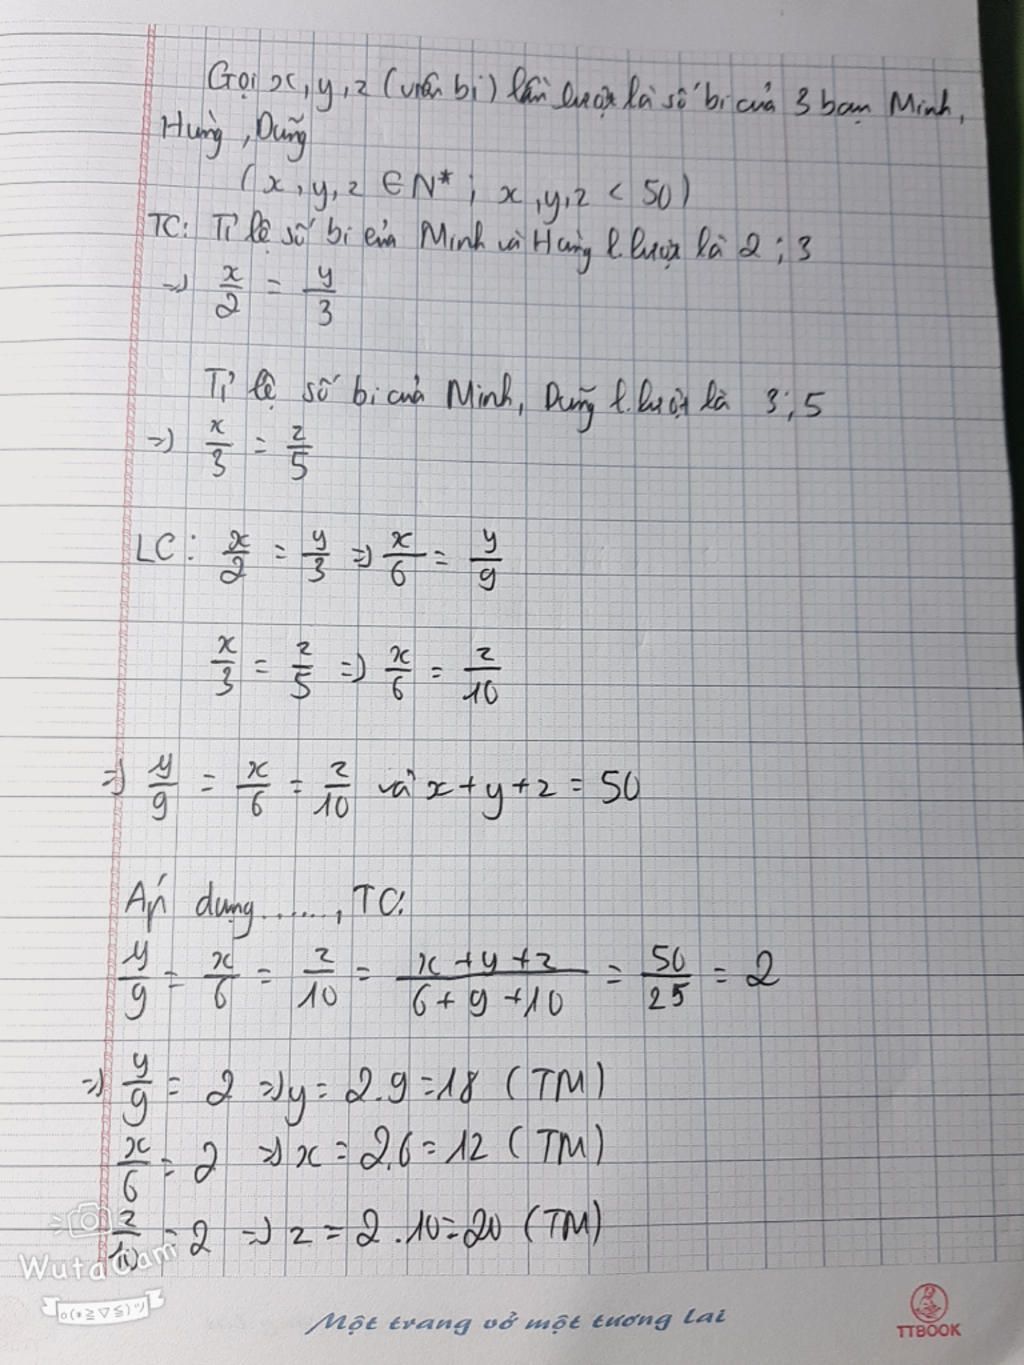 Gọi x, y, z (viên bi) lần lượt là số bi của 3 bạn Minh,
Hùng, Dũng
(x, y, z ∈ N*; x, y, z < 50)
TC: Tỉ lệ số bi của Minh và Hùng l.lượt là 2; 3
=> x/2 = y/3
Tỉ lệ số bi của Minh, Dũng l.lượt là 3; 5
=> x/3 = z/5
LC: x/2 = y/3 => x/6 = y/9
x/3 = z/5 => x/6 = z/10
=> y/9 = x/6 = z/10 và x + y + z = 50
Áp dụng ......, TC:
y/9 = x/6 = z/10 = (x + y + z)/(6 + 9 + 10) = 50/25 = 2
=> y/9 = 2 => y = 2.9 = 18 (TM)
x/6 = 2 => x = 2.6 = 12 (TM)
z/10 = 2 => z = 2.10 = 20 (TM)
WutaCam
o(*≧▽≦)ツ
Một trang vở một tương lai
TTBOOK